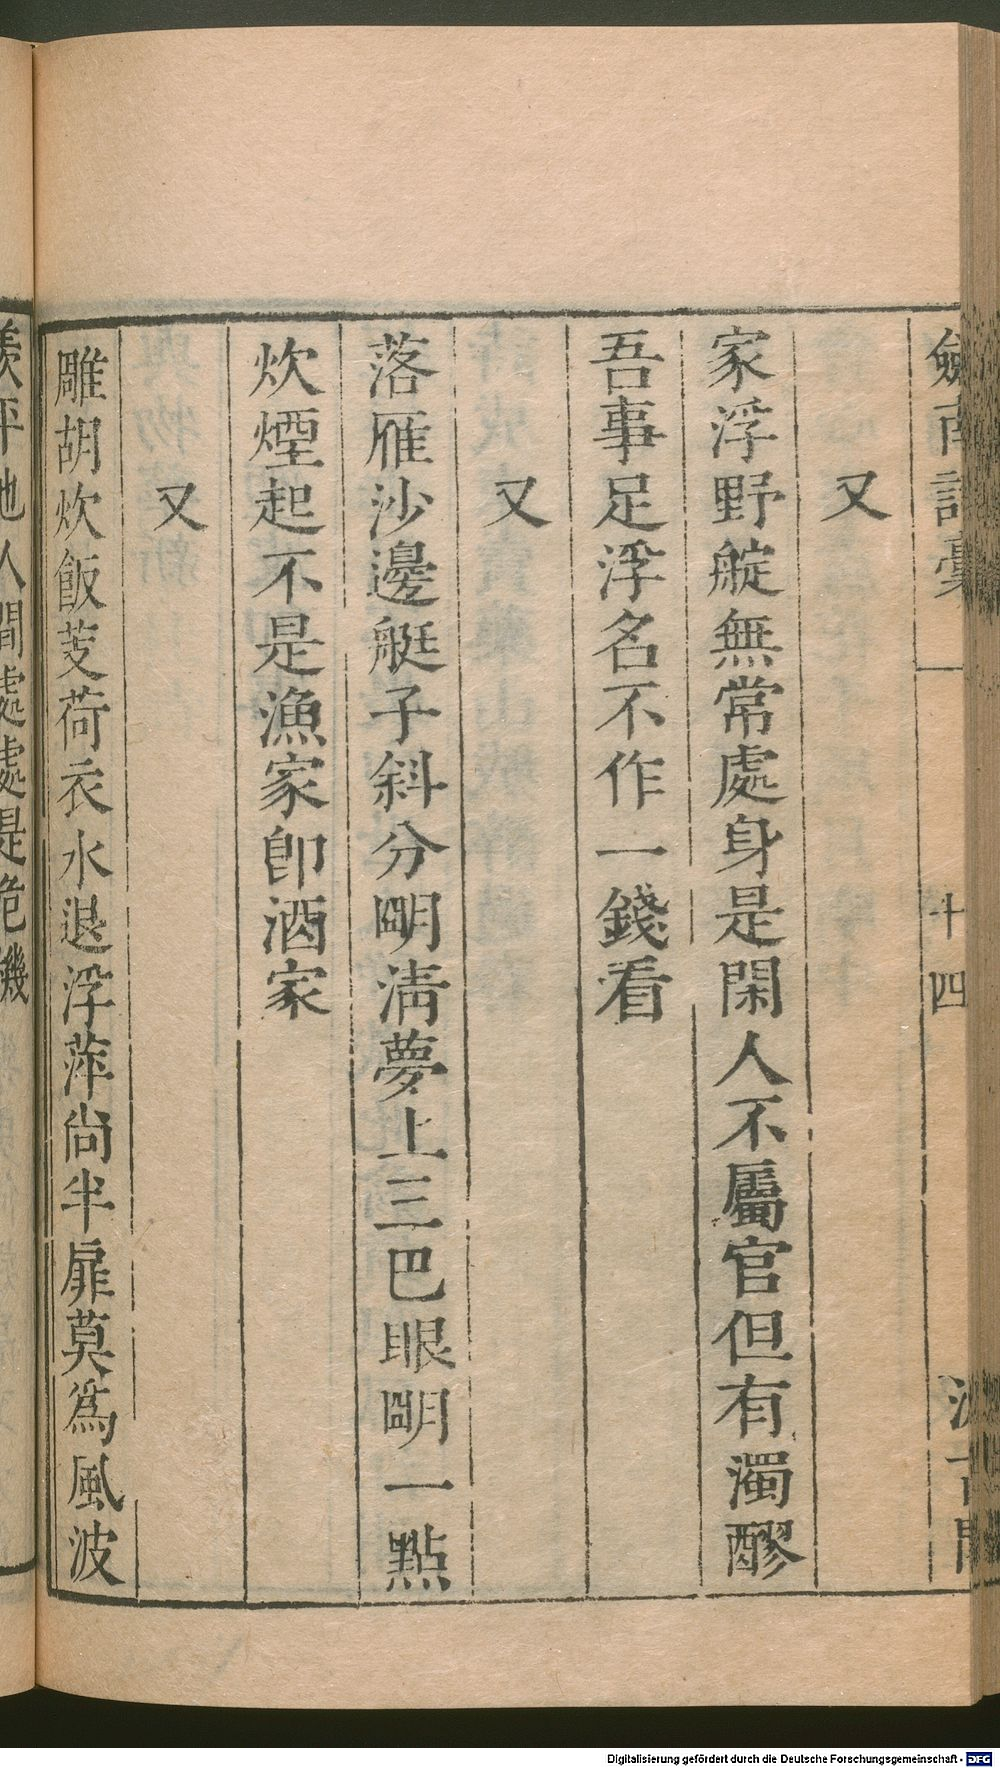 劒南詩稾
十四
又
家浮野艇無常處身是閑人不屬官但有濁醪
吾事足浮名不作一錢看
又
落雁沙邊艇子斜分明淸夢上三巴眼明一點
炊煙起不是漁家卽酒家
又
雕胡炊飯芰荷衣水退浮萍尚半扉莫爲風波
羨平地人間處處是危機
Digitalisierung gefördert durch die Deutsche Forschungsgemeinschaft - DFG